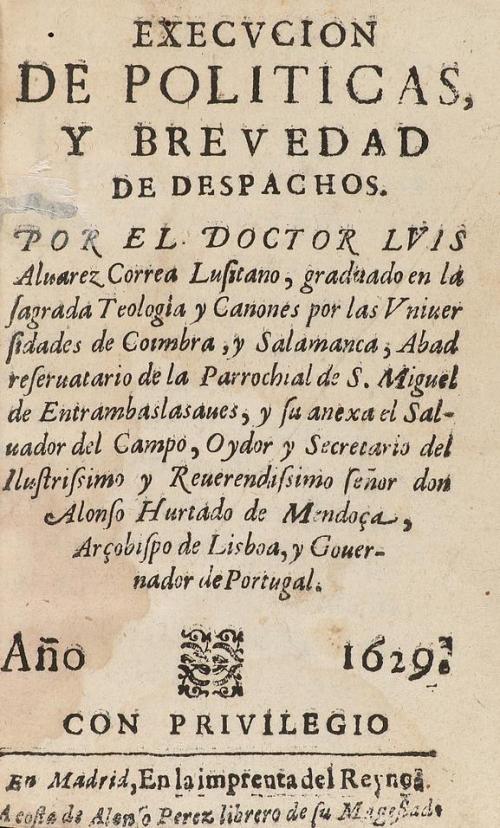 EXECVCION
DE POLITICAS,
Y BREVEDAD
DE DESPACHOS.
POR EL DOCTOR LVIS
Aluarez Correa Lusitano, graduado en la
sagrada Teologia y Canones por las Vniuer
sidades de Coimbra, y Salamanca, Abad
reseruatario de la Parrochial de S. Miguel
de Entrambaslasaues, y su anexa el Sal-
uador del Campo, Oydor y Secretario del
Ilustrissimo y Reuerendissimo señor don
Alonso Hurtado de Mendoça,
Arçobispo de Lisboa, y Gouer-
nador de Portugal.
Año 1629.
CON PRIVILEGIO
En Madrid, En la imprenta del Reyno.
A costa de Alonso Perez librero de su Magestad.